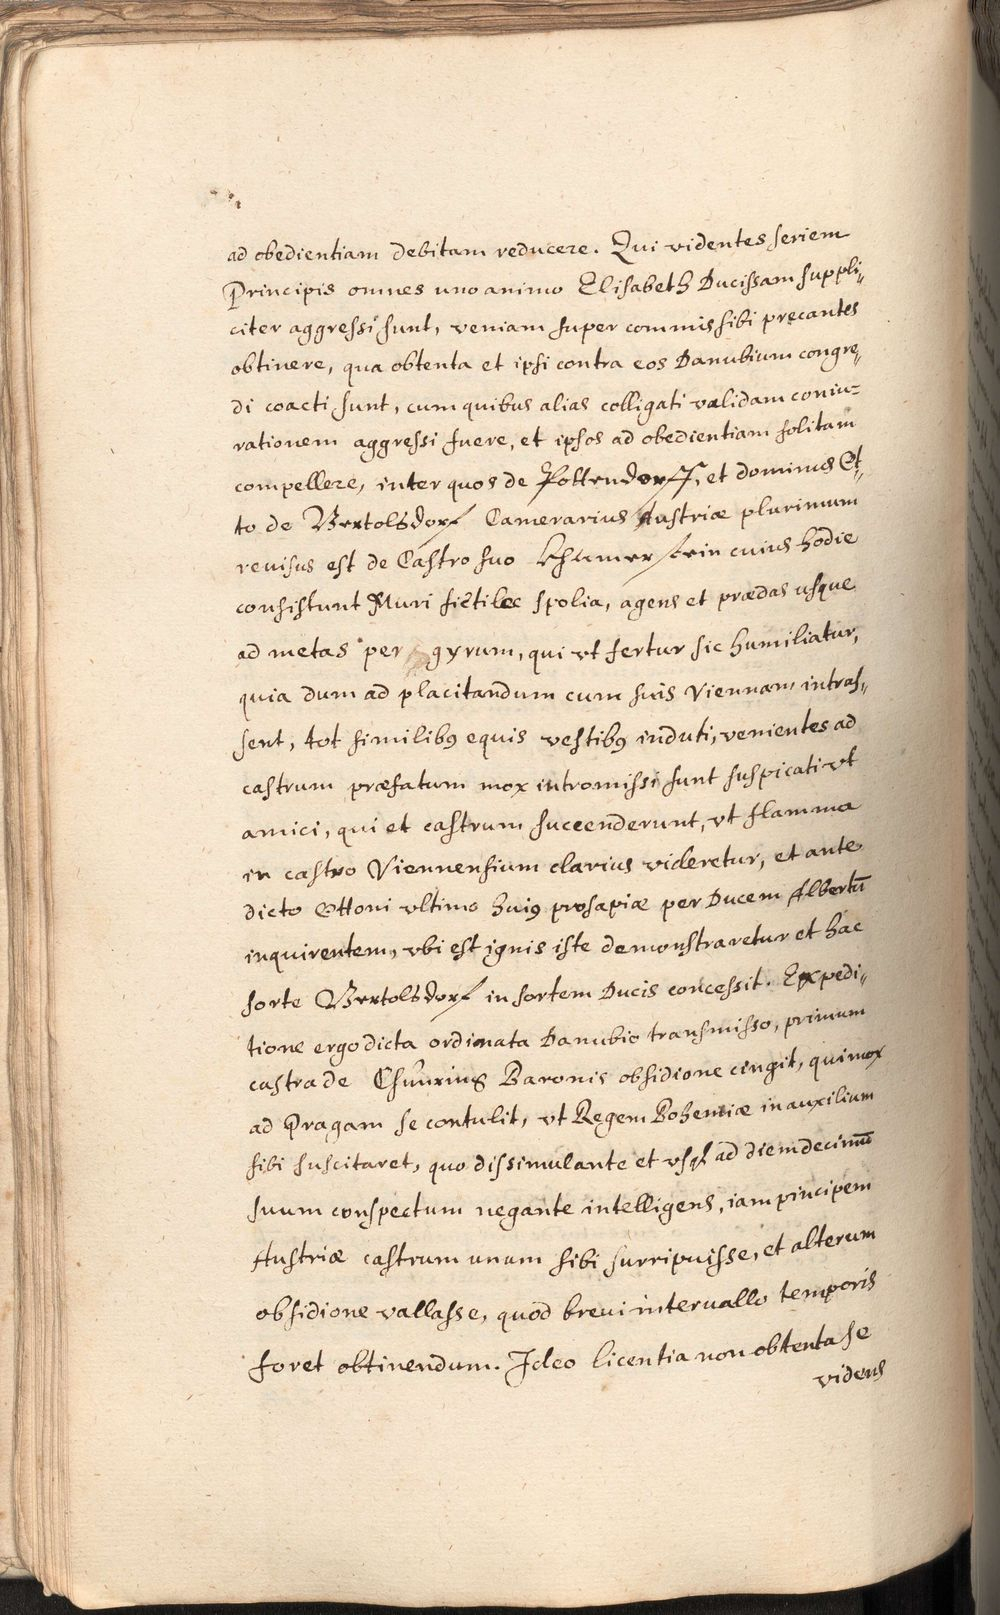 ad obedientiam debitam reducere. Qui videntes seriem
Principis omnes uno animo Elisabeth Ducissam suppli„
citer aggressi sunt, veniam super commissibi pręcantes
obtinere, qua obtenta et ipsi contra eos Danubium congrę„
di coacti sunt, cum quibus alias colligati validam coniu-
rationem aggressi fuere, et ipsos ad obedientiam solitam
compellere, inter quos de Pottendorff, et dominus Ot„
to de Bertolsdorf Camerarius Austriæ plurimum
revisus est de Castro suo cuius hodie
consistunt Muri fictiles spolia, agens et prædas usque
ad metas per gyrum, qui vt fertur sic humiliatur,
quia dum ad placitandum cum suis Viennam intras„
sent, tot similibꝰ equis vestibꝰ induti, venientes ad
castrum præfatum mox intromissi sunt suspicati vt
amici, qui et castrum succenderunt, vt flamma
in castro Viennensium clarius videretur, et ante
dicto Ottoni vltimo huiꝰ prosapiæ per Ducem Albertū
inquirentem, vbi est ignis iste demonstraretur et hac
sorte Bertolsdorf in sortem Ducis concessit. Expedi„
tione ergo dicta ordinata Danubio transmisso, primum
castra de Baronis obsidione cingit, qui mox
ad Pragam se contulit, vt Regem Bohemiæ in auxilium
sibi suscitaret, quo dissimulante et vsqꝫ ad diem decimū
suum conspectum negante intelligens, iam pincipem
Austriæ castrum unum sibi surripuisse, et alterum
obsidione vallasse, quod breui interuallo temporis
foret obtinendum. Ideo licentia non obtenta se
videns